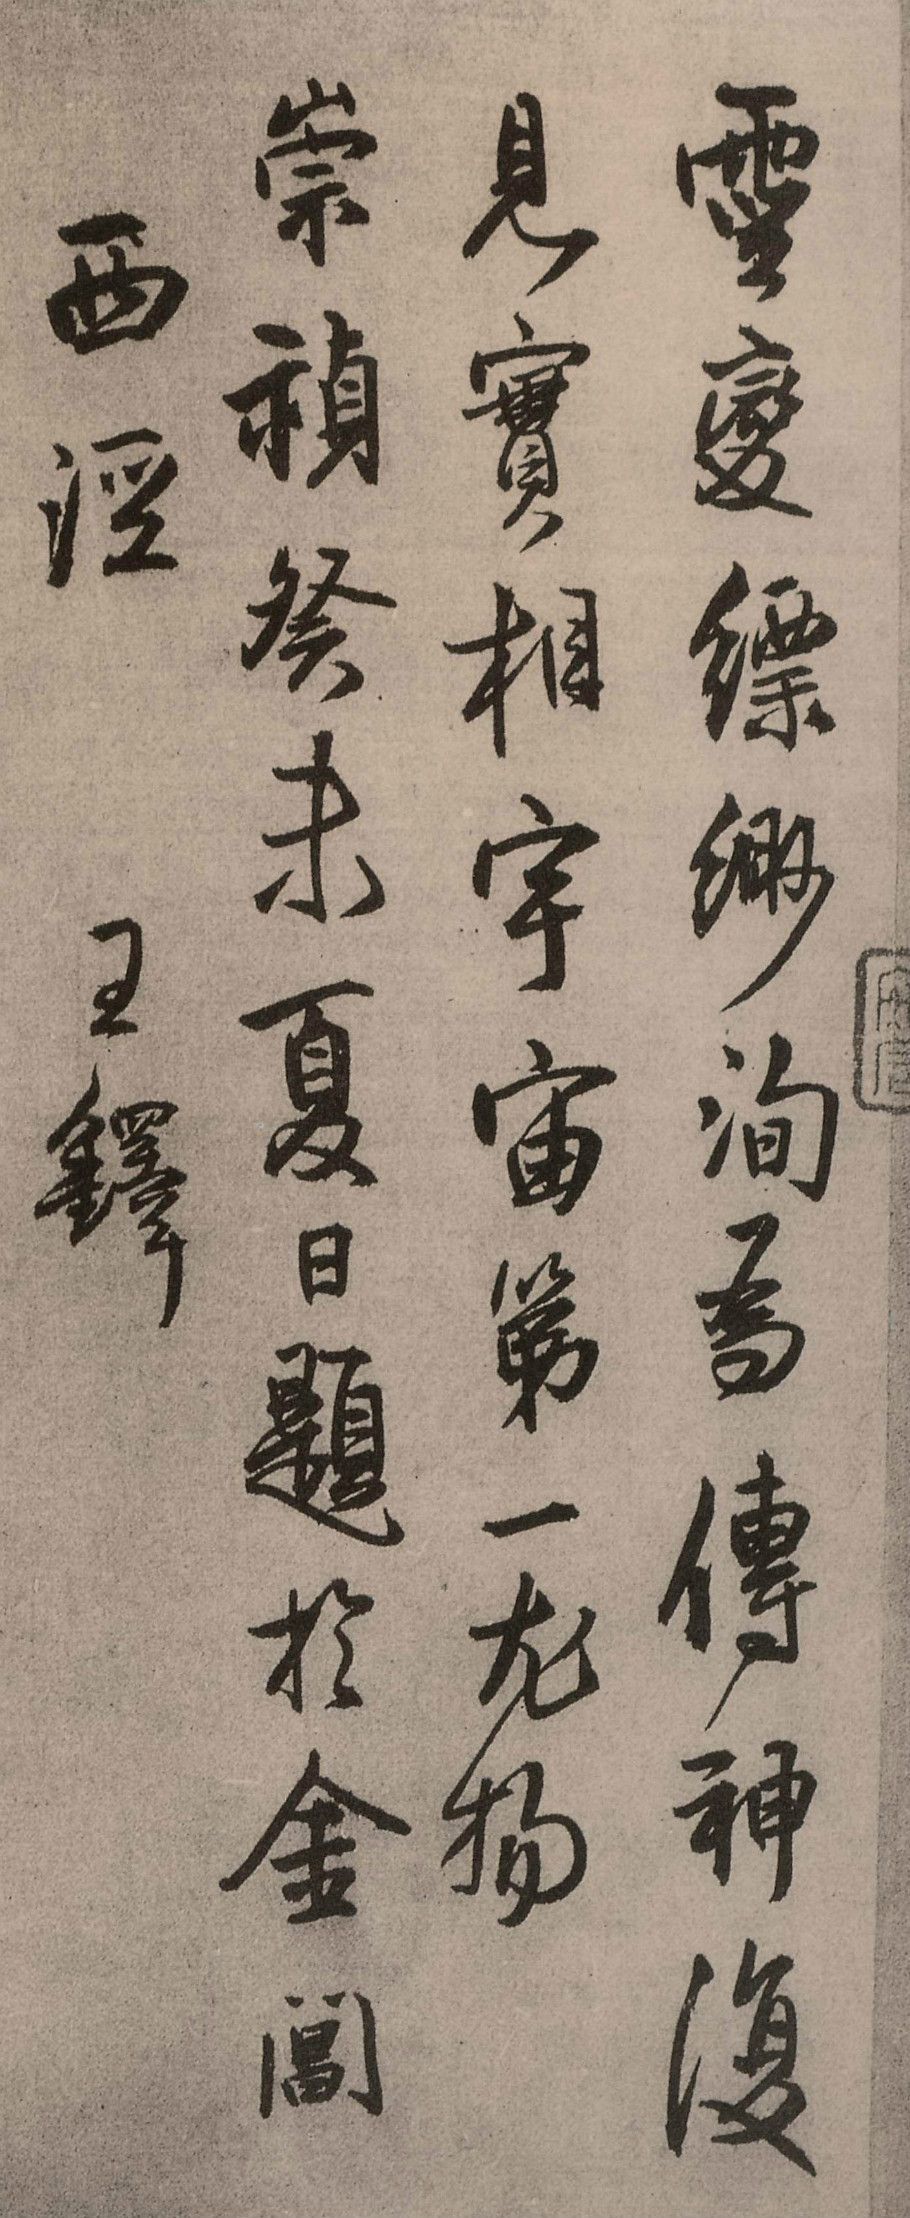 靈變縹緲洵為傳神復
見實相宇宙第一尤物
崇禎癸未夏日題於金閶
西涇 王鐸